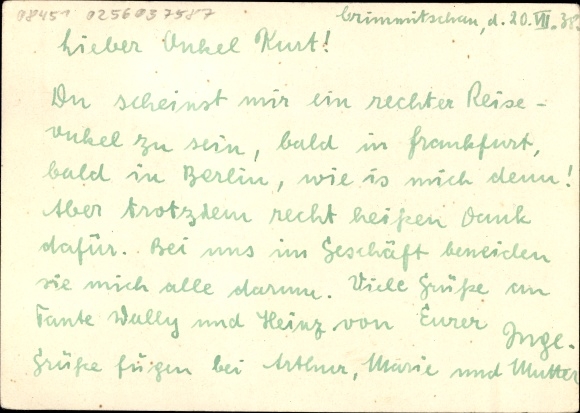 08451 0256037587
Crimmitschau, d. 20. VII. 38.
Lieber Onkel Kurt!
Du scheinst mir ein rechter Reise-
onkel zu sein, bald in Frankfurt,
bald in Berlin, wie is mich denn!
Aber trotzdem recht heißen Dank
dafür. Bei uns im Geschäft beneiden
sie mich alle darum. Viele Grüße an
Tante Wally und Heinz von Eurer Inge.
Grüße fügen bei Arthur, Marie und Mutter